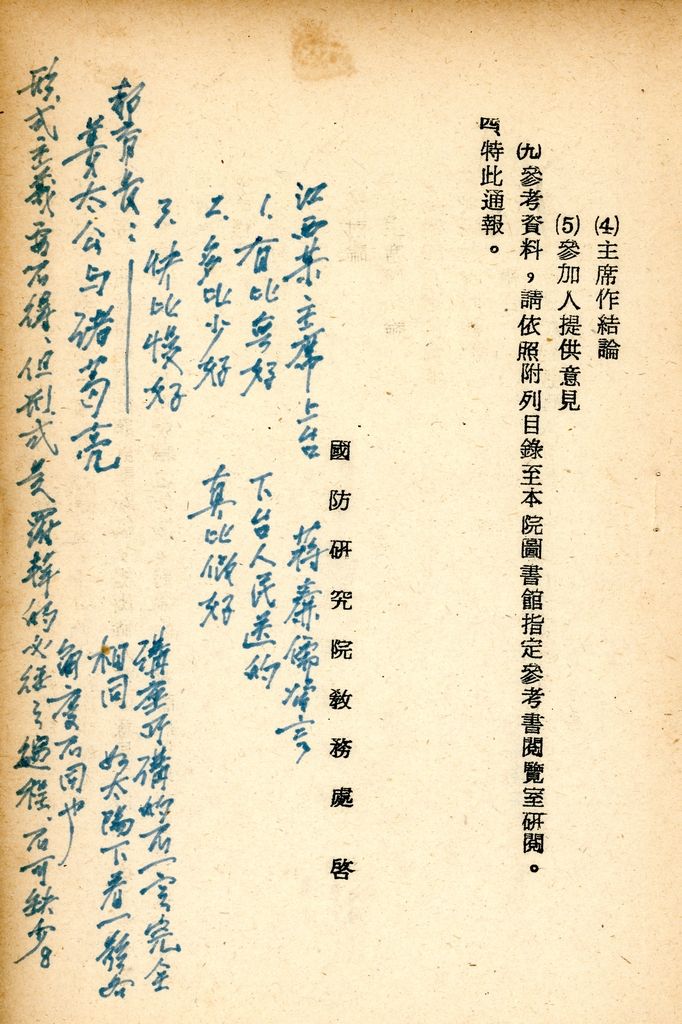 (4)主席作結論
(5)參加人提供意見
(九)參考資料，請依照附列目錄至本院圖書館指定參考書閱覽室研閱。
四、特此通報。
國防研究院教務處 啓
江西某主席上台
1. 有比無好
2. 多比少好
3. 快比慢好
下台人民送的
真比假好
教育長：
姜太公与諸葛亮
講座所講的不一定完全
相同 如太陽下看一
角度不同也
形式主義要不得、但形式是 的必經之過程、不可缺少。